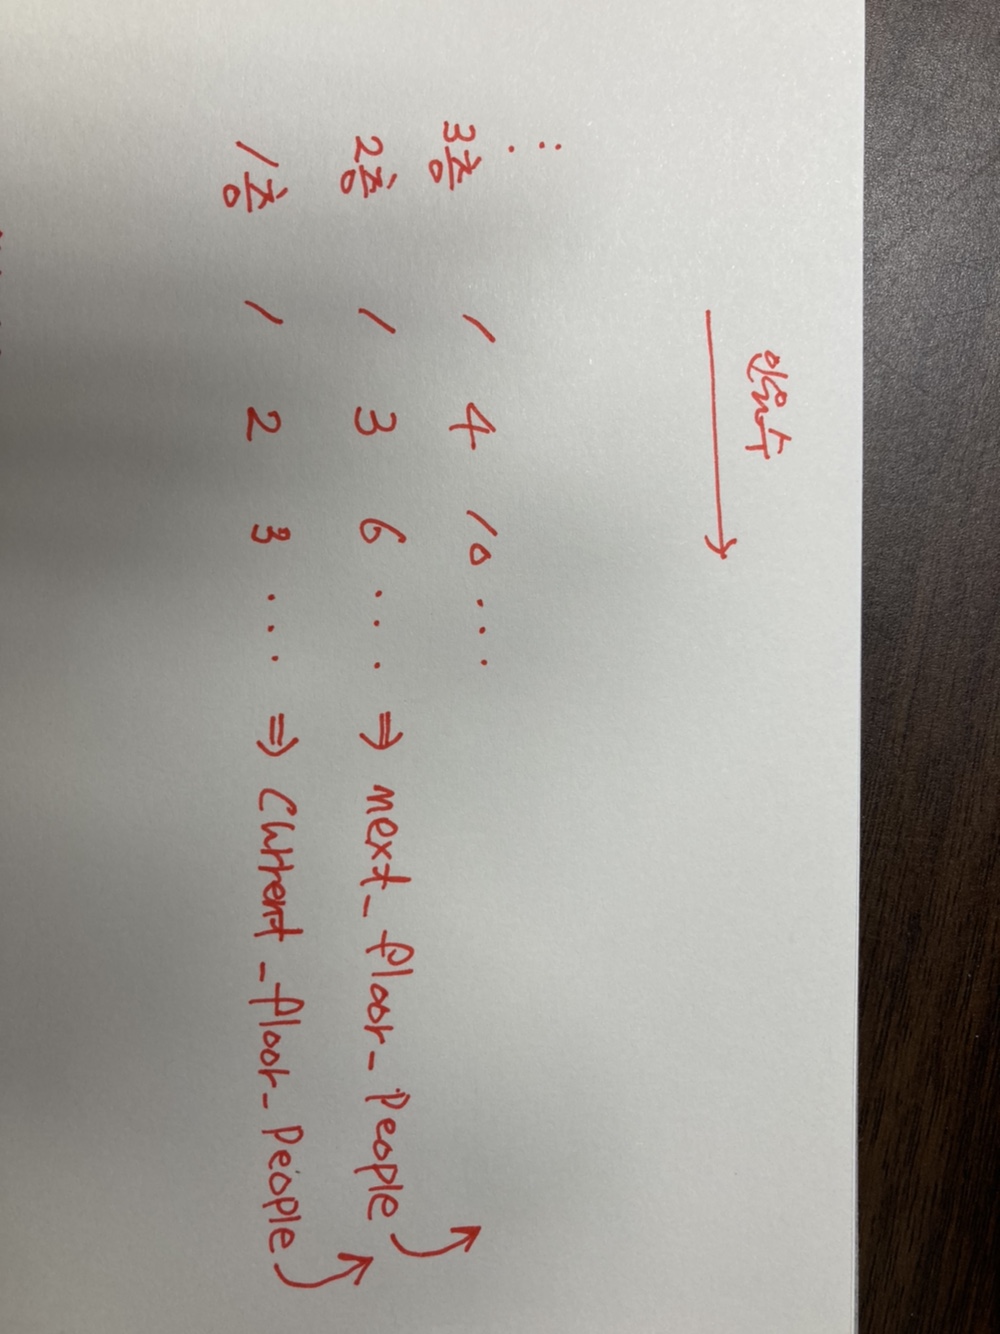 인원수
3층 1 4 10 ...
2층 1 3 6 ... ⇒ next_floor_people
1층 1 2 3 ... ⇒ current_floor_people